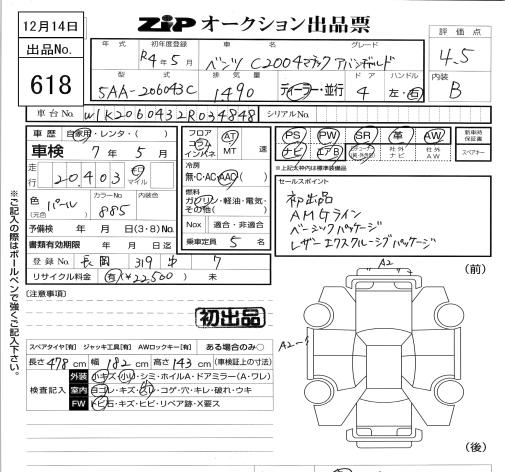 12月14日
ZIP オークション出品票
出品No.
618
年式 初年度登録 車名 グレード
R4年5月 ベンツ C2004マチック アバンギャルド
型式 排気量 ドア ハンドル
5AA-206043C 1490 ディーラー・並行 4 左・右
評価点
4.5
内装
B
車台No. W1K2060432R034848 シリアルNo.
車歴 自家用・レンタ・( )
車検 7年5月
走行 20,403 km マイル
色(元色) パール カラーNo 885 内装色
予備検 年 月 日(3・8)No.
書類有効期限 年 月 日迄
登録No. 長岡 319 7
リサイクル料金 有(¥22,500) 未
フロア コラム インパネ AT MT 速
冷房 無・C・AC・AAC
燃料 ガソリン・軽油・電気・その他( )
Nox 適合・非適合
乗車定員 5名
PS PW SR 革 AW 新車時保証書
ナビ エアB 社外ナビ 社外AW スペアキー
※上記太枠内は標準装備品
セールスポイント
初出品
AMGライン
ベーシックパッケージ
レザーエクスクルーシブパッケージ
※ご記入の際はボールペンで強くご記入下さい。
〔注意事項〕
初出品
スペアタイヤ[有] ジャッキ工具[有] AWロックキー[有] ある場合のみ○
長さ478cm 幅182cm 高さ143cm (車検証上の寸法)
検査記入
外装 小キズ・小凹・シミ・ホイルA・ドアミラー(A・ワレ)
室内 ヨゴレ・キズ・スレ・コゲ・穴・キレ・破れ・ウキ
FW トビ石・キズ・ヒビ・リペア跡・X要ス
(前)
A2
A2-
(後)